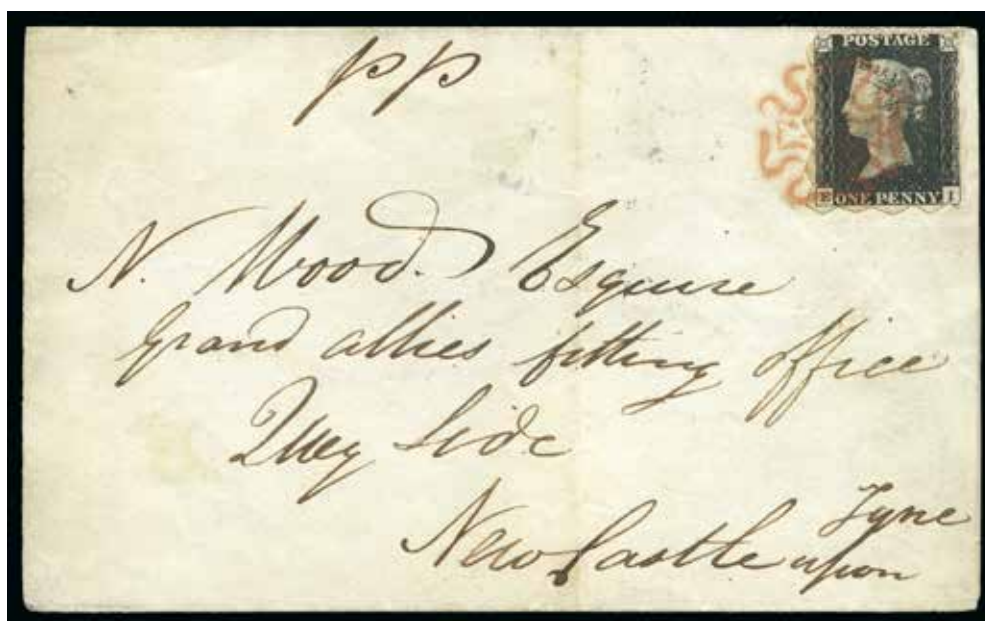 pp
POSTAGE
E ONE PENNY I
N. Wood. Esquire
Grand allies fitting office
Quey Side
Tyne
New Castle upon